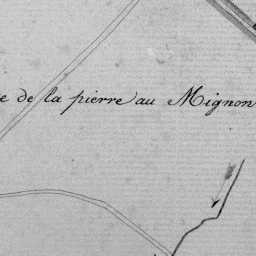 e de la pierre au Mignon